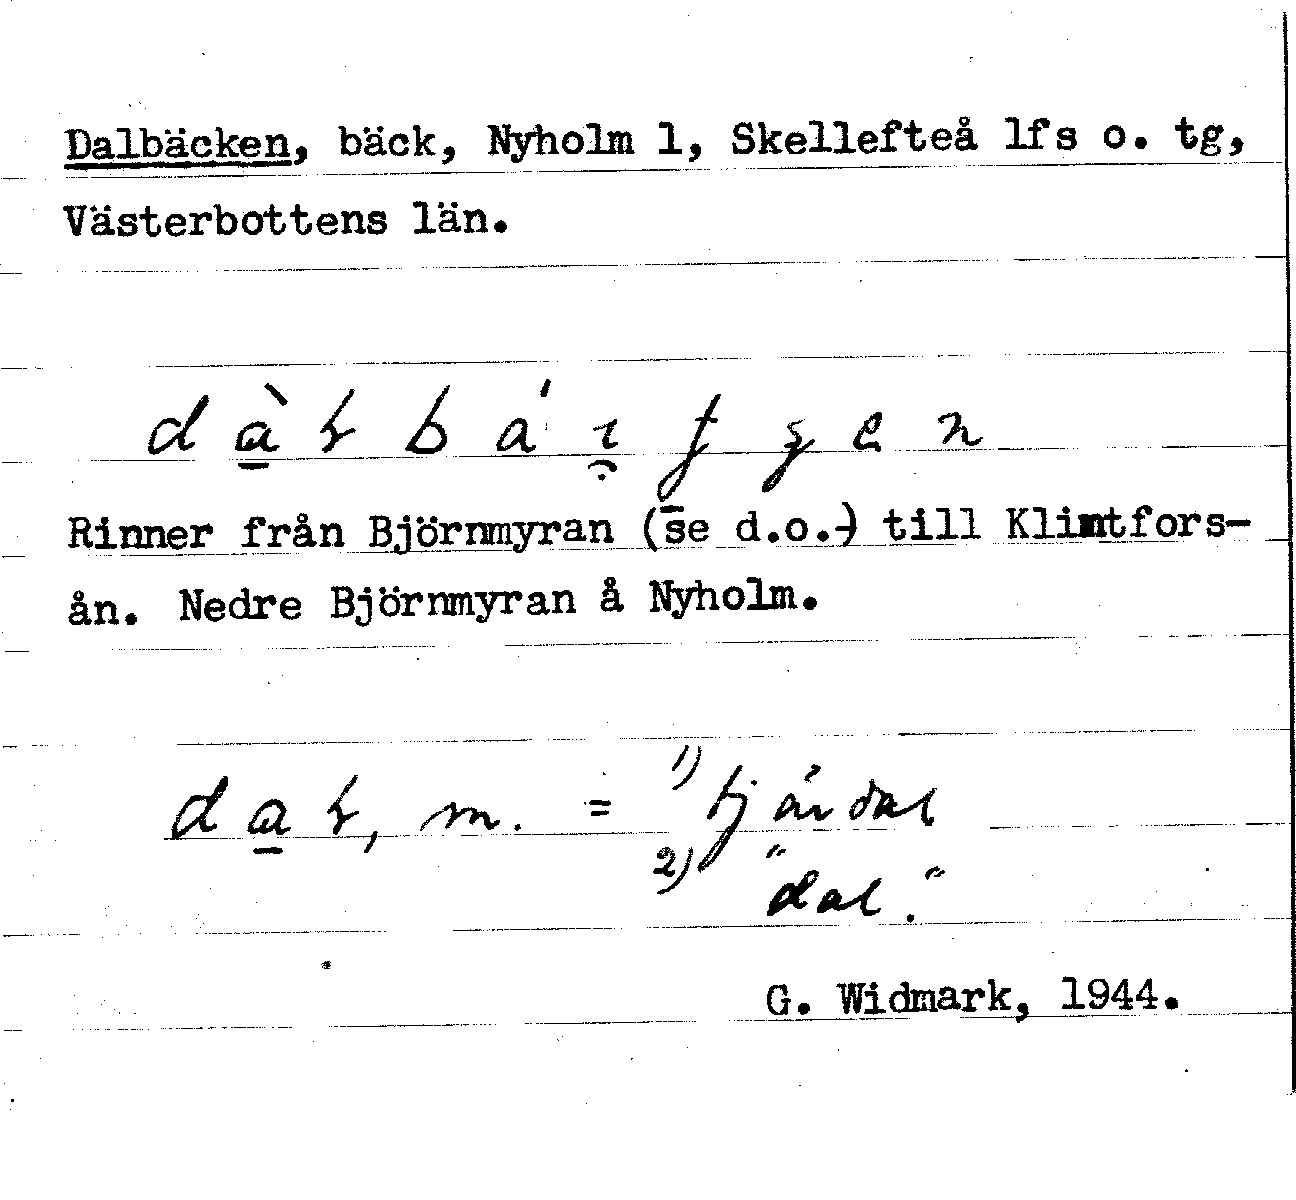 Dalbäcken, bäck, Nyholm 1, Skellefteå lfs o. tg,
Västerbottens län.
Rinner från Björnmyran (se d.o.) till Klintfors-
ån. Nedre Björnmyran å Nyholm.
m. = 1) tjärdal
2) "dal."
G. Widmark, 1944.